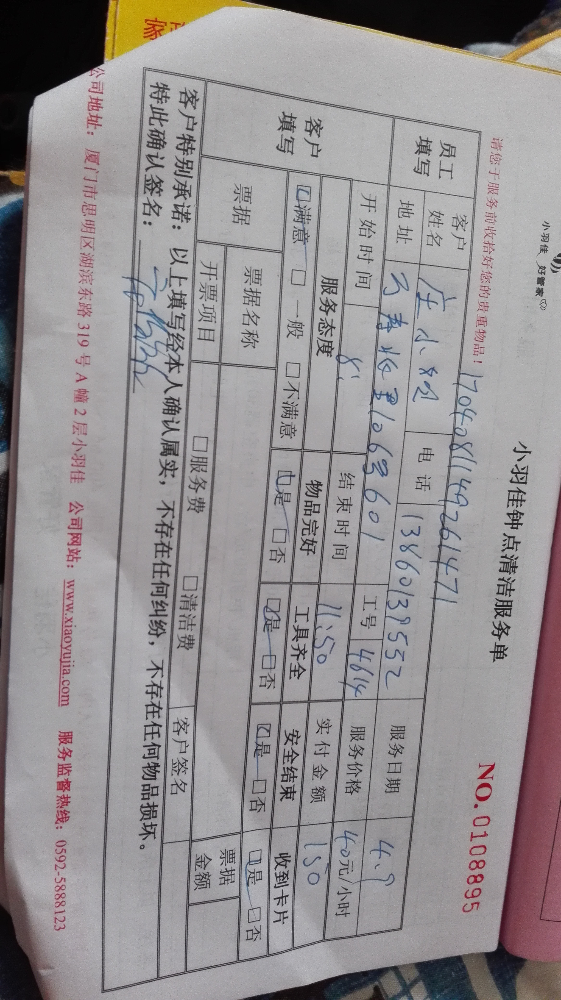 小羽佳 好管家
小羽佳钟点清洁服务单
NO.0108895
请您于服务前收拾好您的贵重物品！
1704081149261471
员工填写 客户姓名 庄小姐 电话 13860139552 服务日期 4.9
地址 万寿 106号601 工号 4614 服务价格 40元/小时
客户填写 开始时间 8: 结束时间 11:50 实付金额 150
服务态度 物品完好 工具齐全 安全结束 收到卡片
☑满意 □一般 □不满意 ☑是 □否 ☑是 □否 ☑是 □否 ☑是 □否
票据 票据名称 票据金额
开票项目 □服务费 □清洁费 客户签名
客户特别承诺：以上填写经本人确认属实，不存在任何纠纷，不存在任何物品损坏。
特此确认签名：
公司地址：厦门市思明区湖滨东路 319 号 A 幢 2 层小羽佳 公司网站：www.xiaoyujia.com 服务监督热线：0592-5888123